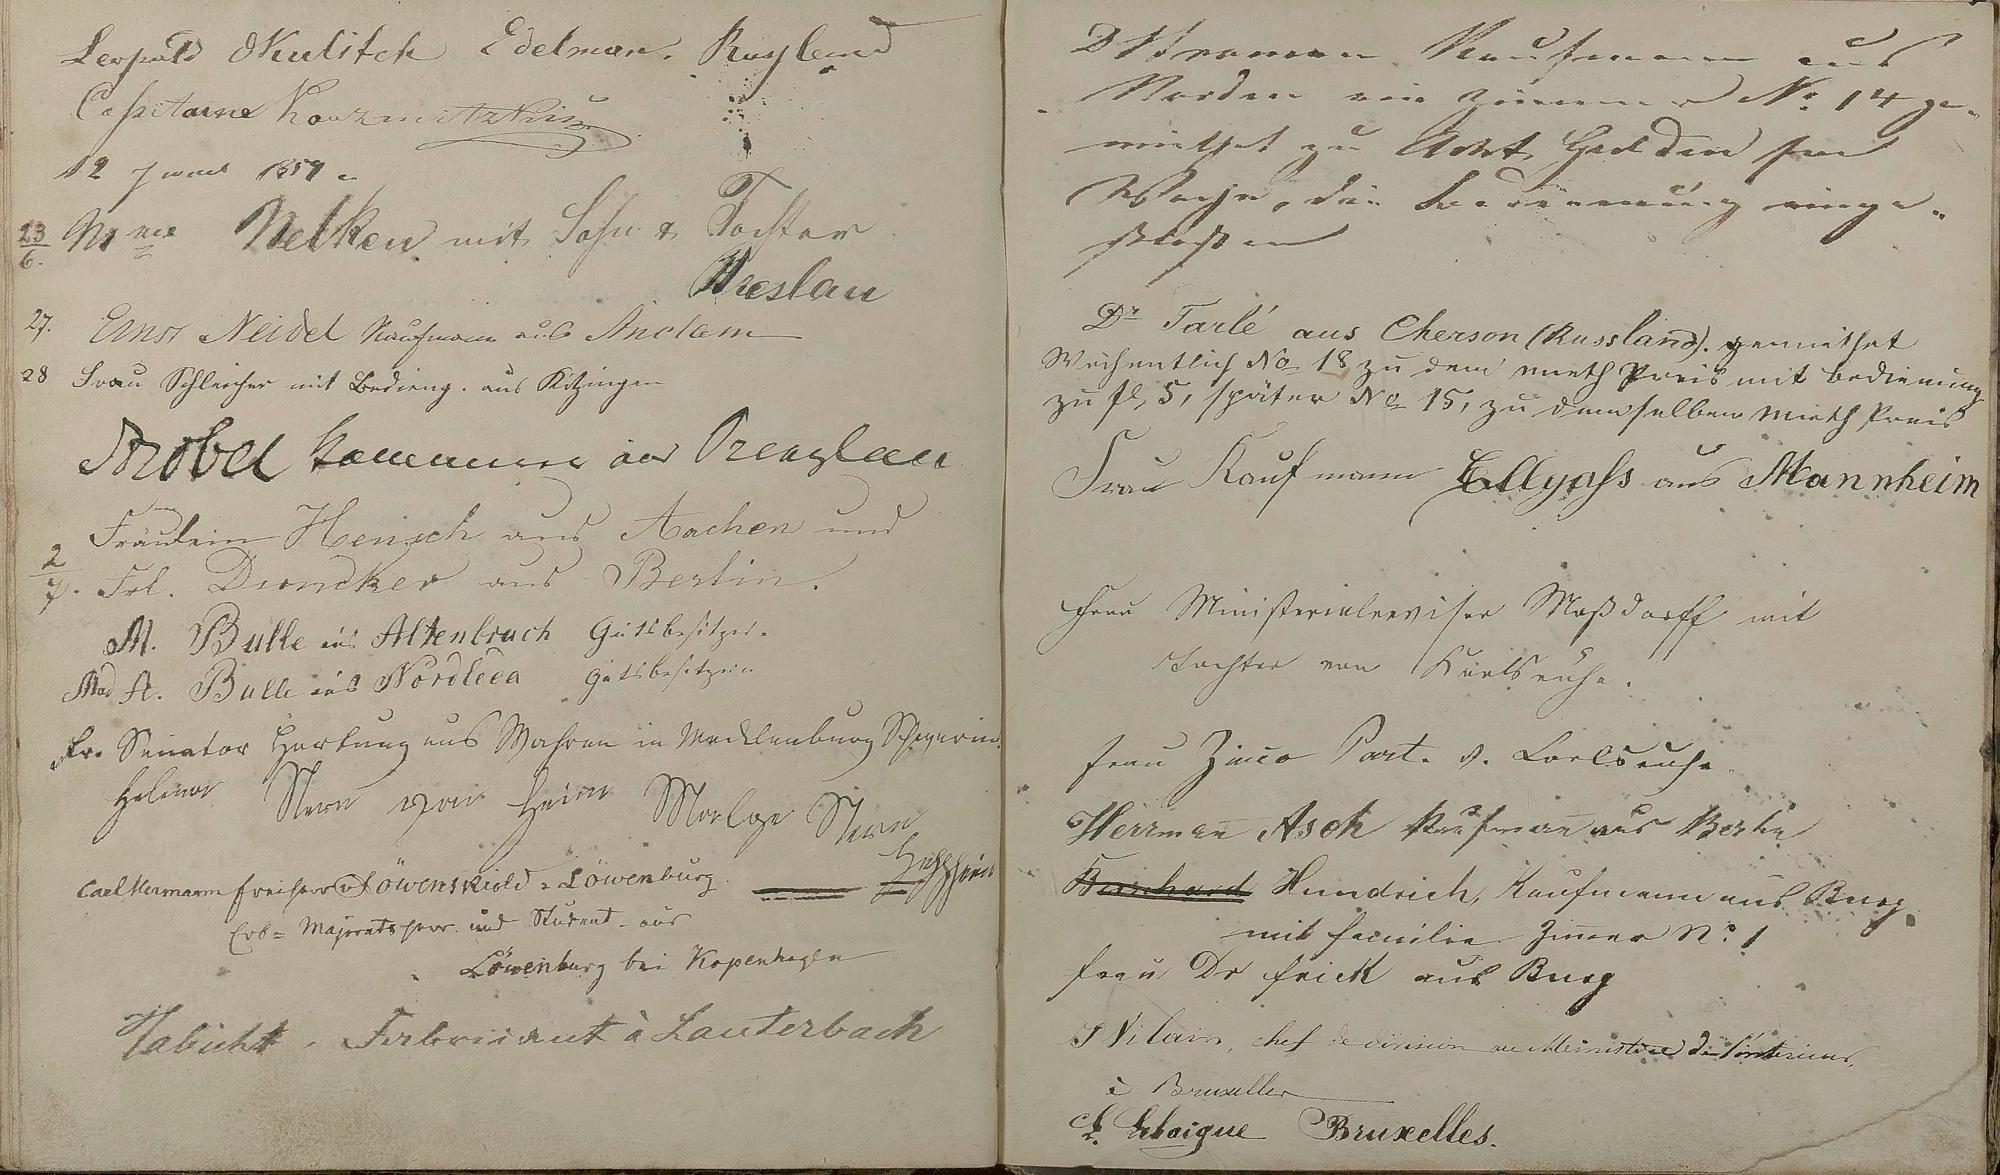 Leopold Okulitch Edelman. Rußland
Capitaine
12 Juni 1857
23/6. Mme Nelken mit Sohn & Tochter
Breslau
27. Ernst Neidel Kaufmann aus Anclam
28 Frau Schleicher mit Bedieng. aus Kitzingen
Strobel aus Prenzlau
Fräulein Hensch aus Aachen und
2/7. Frl. Duncker aus Berlin.
M. Bulle aus Altenbruch Gutsbesitzer.
Mad A. Bulle aus Nordleda Gutsbesitzerin
Fr. Senator Hartung aus Wahren in Mecklenburg Schwerin.
Helene Stern von
Stern
Carl Hermann Freiherr v Löwenskiold-Löwenburg
Erb-Majoratsherr und Student - aus
Löwenburg bei Kopenhagen
Habicht, Fabricant à Lauterbach
Kaufmann aus
Norden ein Zimmer No 14 ge-
miethet zu Acht Gulden per
Woche, die Bedienung einge-
schlossen
Dr Tarlé aus Cherson (Russland). gemiethet
Wöchentlich No 18 zu dem mieth Preis mit bedienung
zu fl. 5, später No 15, zu demselben mieth Preis
Frau Kaufmann Ellyass aus Mannheim
Frau Ministerialrevisor Maßdorff mit
Tochter von Karlsruhe.
Frau Part. v. Carlsruhe.
Herrman Asch Kaufman aus Berlin
Bernhard Hundrich, Kaufmann aus Burg
mit Familie Zimer No 1
Frau Dr Frick aus Burg
J Vilain, chef de division au Ministère de l'intérieur,
à Bruxelles
Bruxelles.